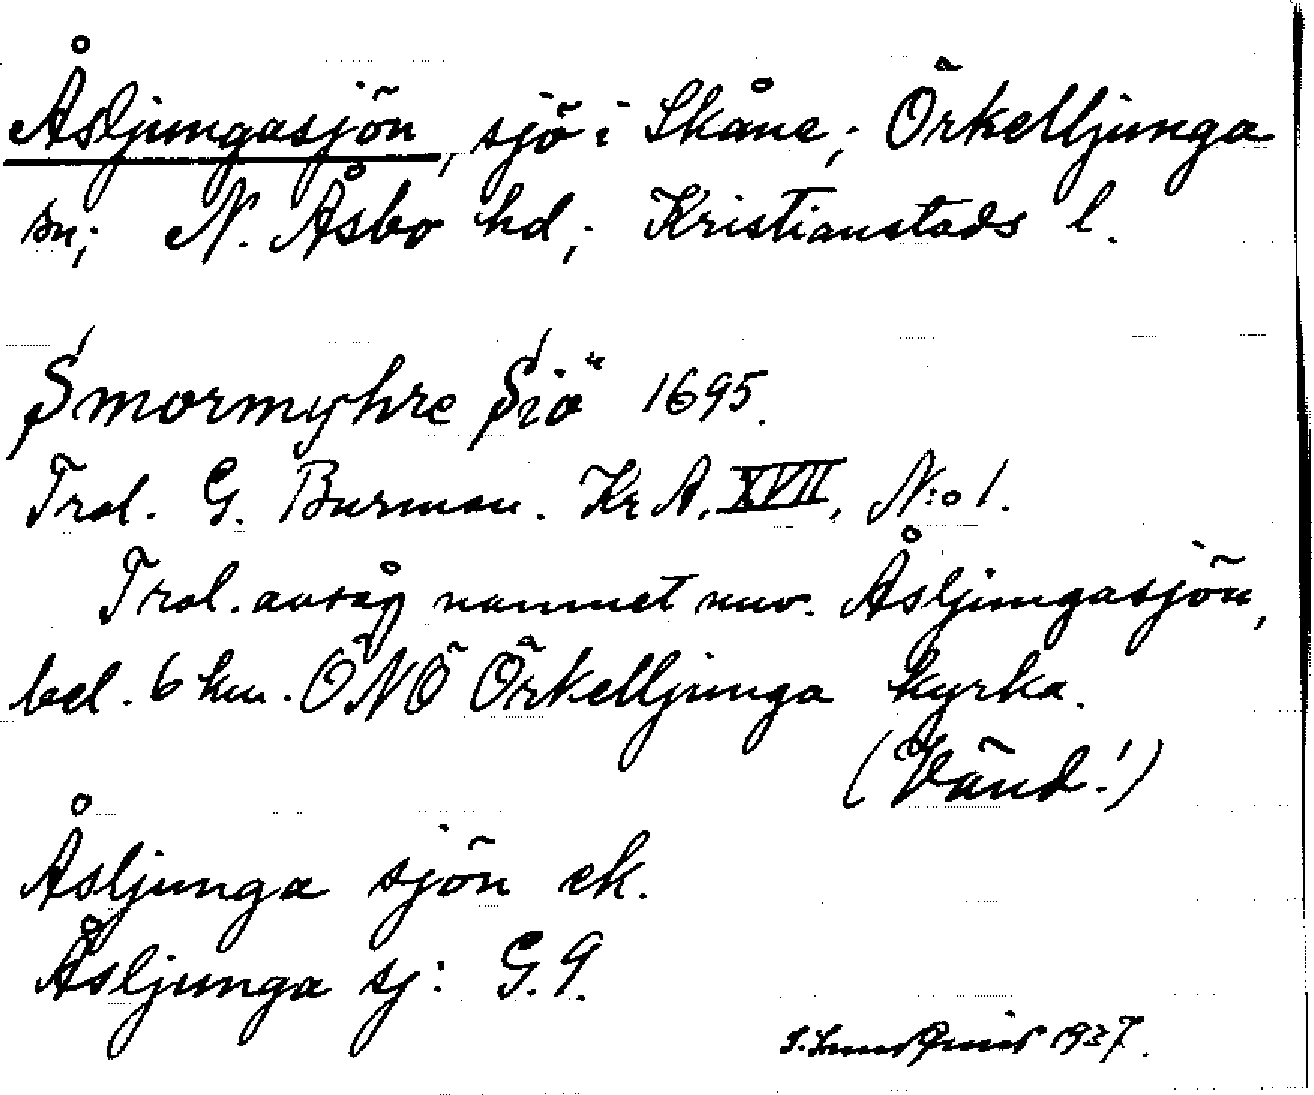 Åsljungasjön, sjö i Skåne; Örkelljunga
sn; N. Åsbo hd; Kristianstads l.
Smormyhre Siö 1695.
Trol. G. Burman. Kr A. XVII, N:o 1.
Trol. avsåg namnet nuv. Åsljungasjön,
bel. 6 km. ÖNÖ Örkelljunga kyrka.
(Vänd!)
Åsljunga sjön ek.
Åsljunga sj: G. 9.
1937.